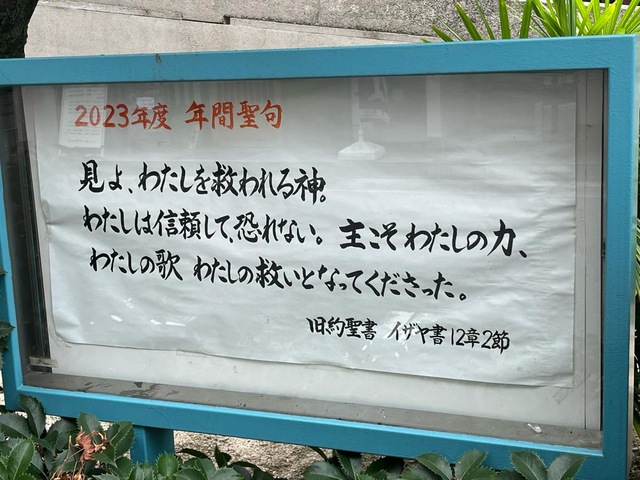 2023年度 年間聖句
見よ、わたしを救われる神。
わたしは信頼して、恐れない。 主こそわたしの力、
わたしの歌 わたしの救いとなってくださった。
旧約聖書 イザヤ書12章2節